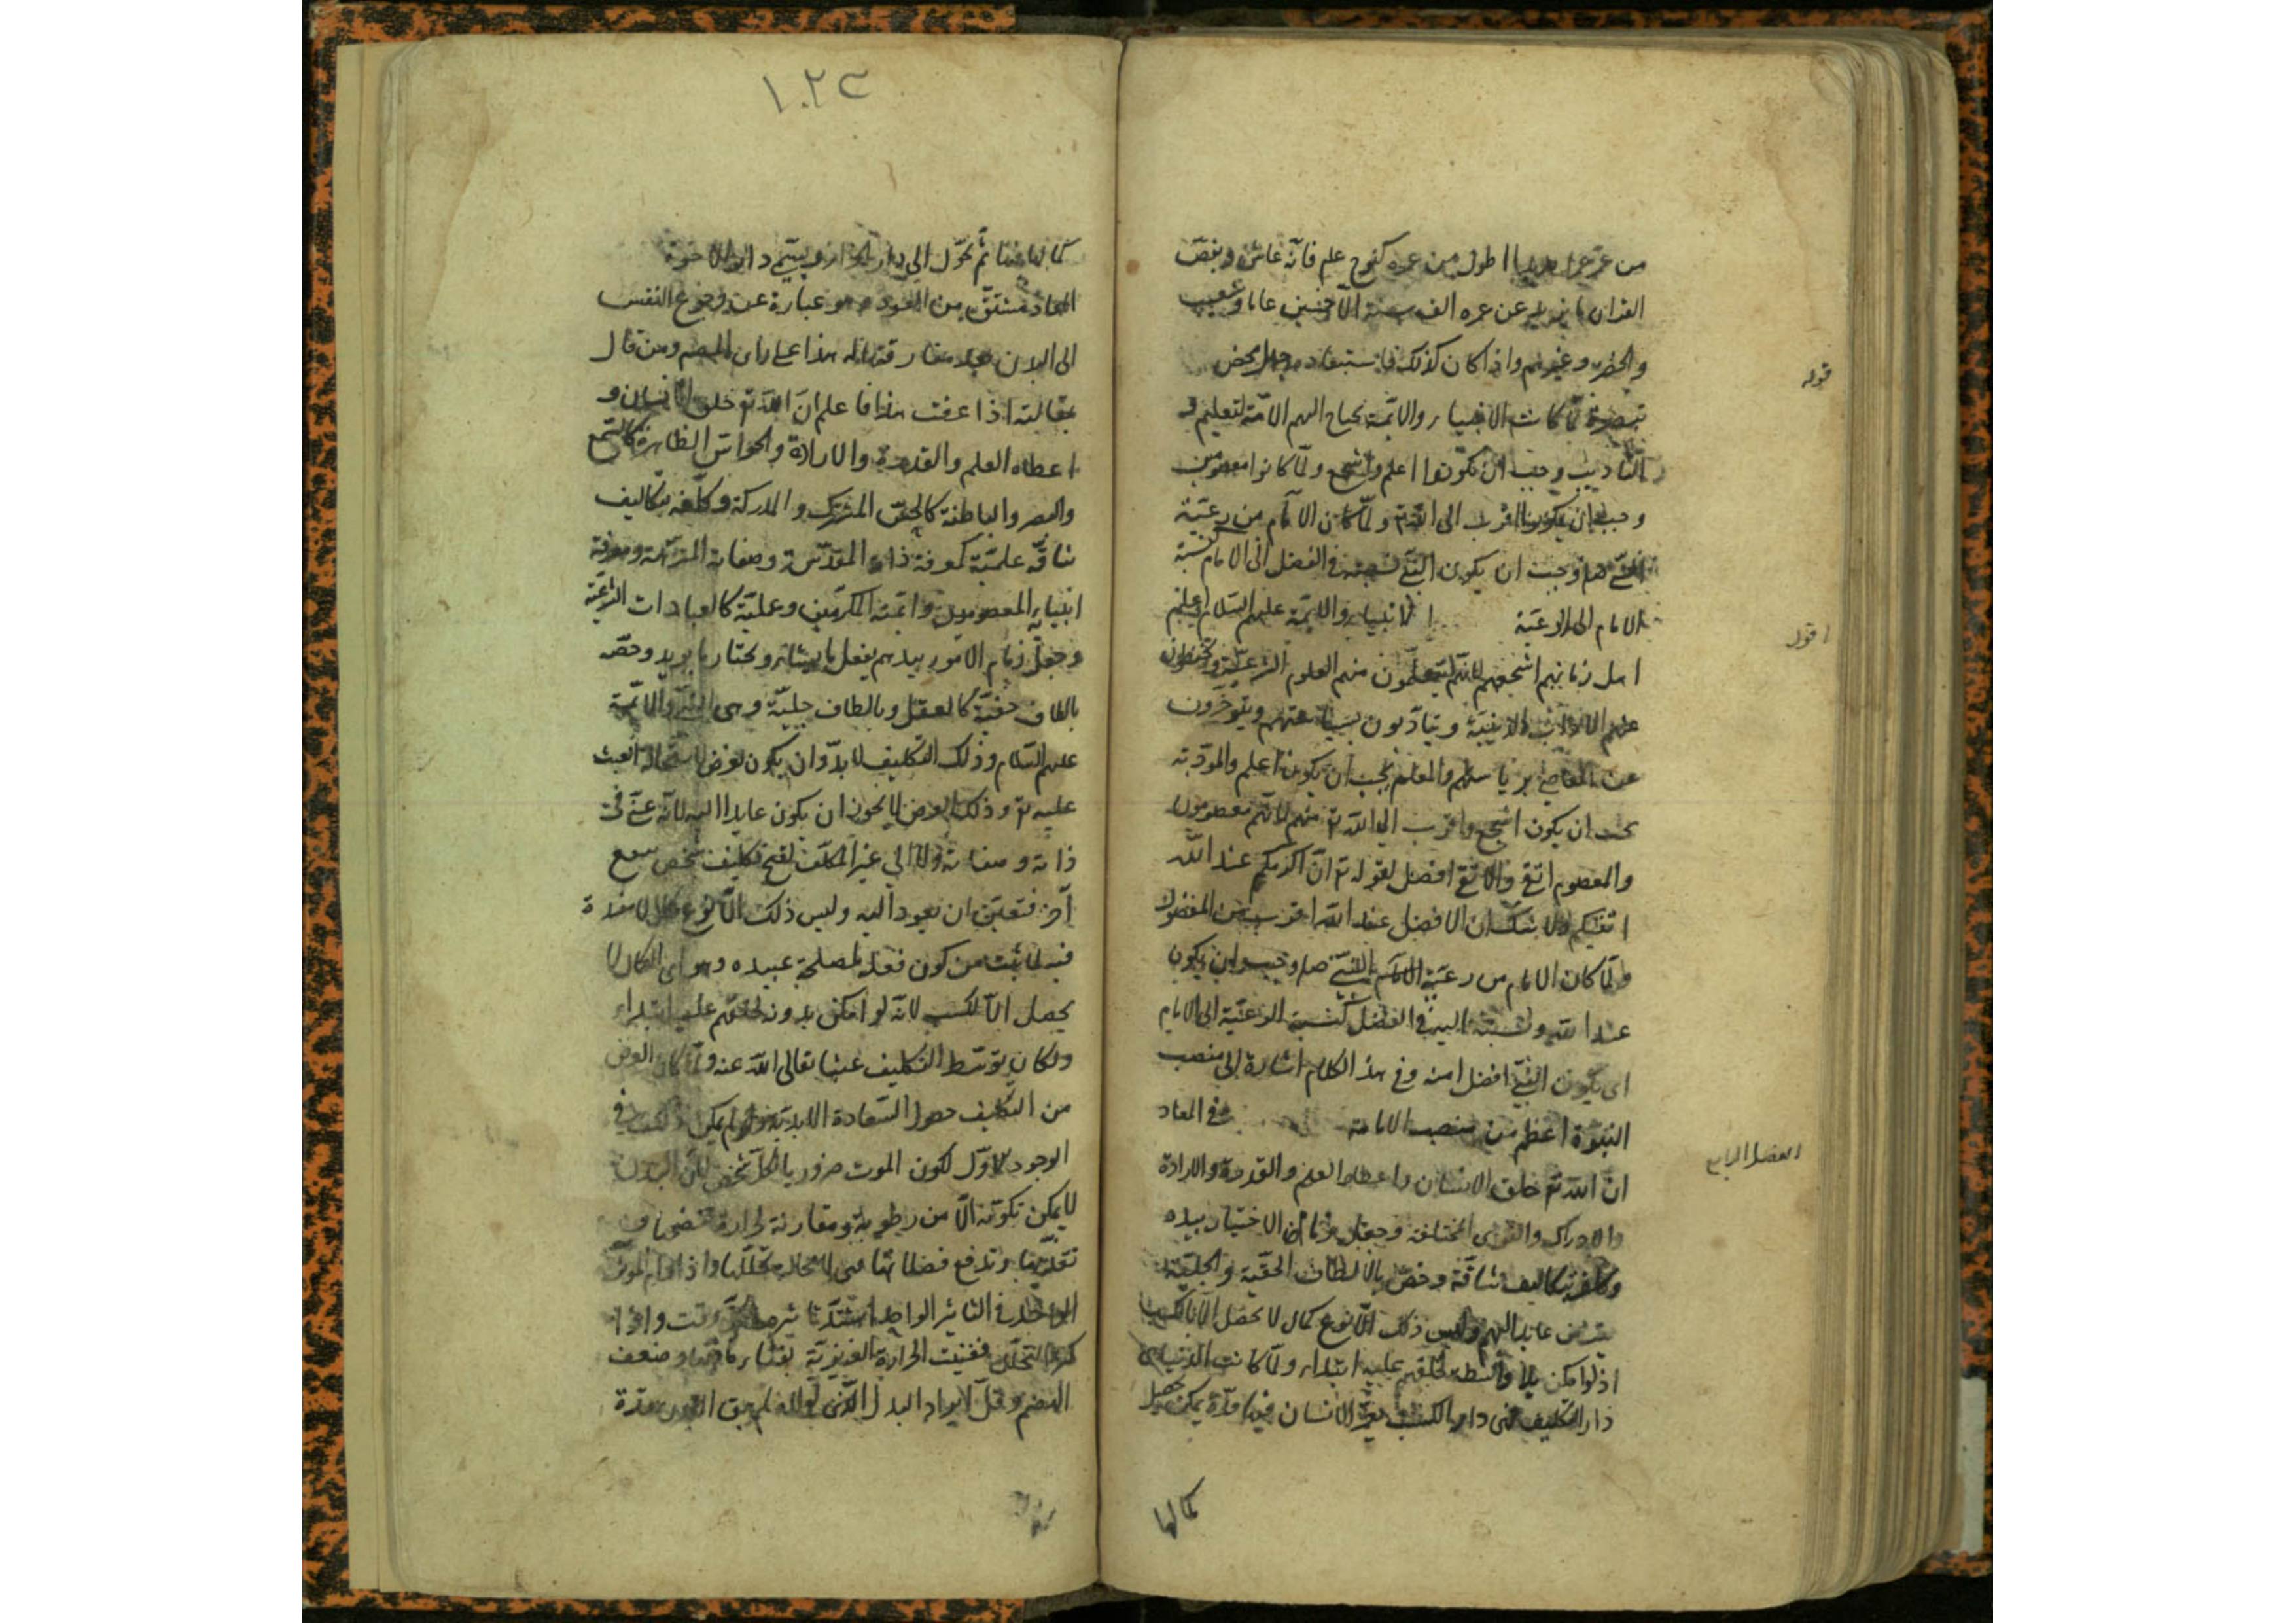 من عمّر عمرا طويلا اطول من عمره كنوح علم فانّه عاش و بنصّ
القران ما يزيد عن عمره الف سنة الّا خمسين عاما وشعيب
والخضر وغيرهم واذا كان كذلك فاستبعاده جهل محض
قوله
تبصرة لمّا كانت الانبياء والائمّة يحتاج اليهم الامّة لتعليم و
التأديب وجب ان يكونوا اعلم واشجع ولمّا كانوا معصومين
وجب ان يكونوا اقرب الى الله تع ولمّا كان الامام من رعيّة
النبيّ صلم وجب ان يكون النبيّ نسبته في الفضل الى الامام كنسبة
الامام الى الرعيّة الانبياء والائمة عليهم السلام اعلم
اقول
اهل زمانهم واشجعهم لانّهم يتعلّمون منهم العلوم الشرعيّة
عليهم الاداب الدينيّة ويتأدّبون بسياستهم
عن المعاصي برياستهم والمعلم يجب ان يكون اعلم والمؤدّب
يجب ان يكون اشجع واقرب الى الله تع منهم لانّهم معصومون
والمعصوم اتقى والاتقى افضل لقوله تع انّ اكرمكم عند الله
اتقيكم ولا شكّ ان الافضل عند الله اقرب من المفضول
ولمّا كان الامام من رعيّة النبيّ صلم وجب ان يكون
عند الله ونسبته اليه في الفضل كنسبة الرعيّة الى الامام
اى يكون النبيّ افضل منه وفى هذا الكلام اشارة الى منصب
النبوّة اعظم من منصب الامامة في المعاد
الفصل الرابع
انّ الله تع خلق الانسان واعطاه العلم والقدرة والارادة
والادراك والقوى المختلفة وجعل زمام الاختيار بيده
وكلّفه بتكاليف شاقّة وخصّه بالالطاف الخفيّة والجليّة
لغرض عايد اليهم وليس ذلك الّا نوع كمال لا يحصل الّا بالكسب
اذ لو امكن بلا واسطة لخلقهم عليه ابتداء ولمّا كانت الدنيا هى
دار التكليف فهى دار الكسب يعمّر الانسان فيها مدّة يمكن تحصيل
كمالها
١٠٢٣
كمالها فيها ثم تحوّل الى دار الجزاء ويسمّى دار الاخرة
المعاد مشتقّ من العود وهو عبارة عن رجوع النفس
الى البدن بعد مفارقتها له هذا على راى المصم ومن قال
بمقالته اذا عرفت هذا فاعلم انّ الله تع خلق الانسان و
اعطاه العلم والقدرة والارادة والحواسّ الظاهرة كالسّمع
والبصر والباطنة كالحسّ المشترك والمدركة وكلّفه بتكاليف
شاقّة علميّة كمعرفة ذاته المقدّسة وصفاته المنزّهة ومعرفة
انبيائه المعصومين وائمته المكرّمين وعمليّة كالعبادات الشرعيّة
وجعل زمام الامور بيدهم يفعل ما يشاء ويختار ما يريد وخصّه
بالطاف خفيّة كالعقل وبالطاف جليّة وهى النبيّ والائمّة
عليهم السّلام وذلك التكليف لا بدّ وان يكون لغرض لاستحالة العبث
عليه تع وذلك الغرض لا يجوز ان يكون عايدا اليه لانّه غنيّ في
ذاته وصفاته ولا الى غير المكلّف لقبح تكليف شخص لنفع
آخر فتعيّن ان يعود اليه وليس ذلك الّا نوع كمال لا مفسدة
فيه لما ثبت من كون فعله لمصلحة عبيده وهو اى الكمال لا
يحصل الّا بالكسب لانّه لو امكن بدونه لخلقهم عليه ابتداء
ولكان توسّط التكليف عبثا تعالى الله عنه ولمّا كان الغرض
من التكليف حصول السّعادة الابديّة ولم يمكن ذلك في
الوجود الاوّل لكون الموت ضروريا لكلّ شخص لانّ البدن
لا يمكن تكوّنه الّا من رطوبة ومقارنة لحرارة تنضجها و
تغذّيها وتدفع فضلاتها فهى لا محالة تحلّلها واذا دام المؤثّر
الواحد في التأثير الواحد اشتدّ تأثيره وقت واذا
كثر التحلّل ففنيت الحرارة الغريزيّة بفناء مادّتها وضعف
الهضم وقلّ ايراد البدل الّذى لولاه لم يبق البدن مدّة